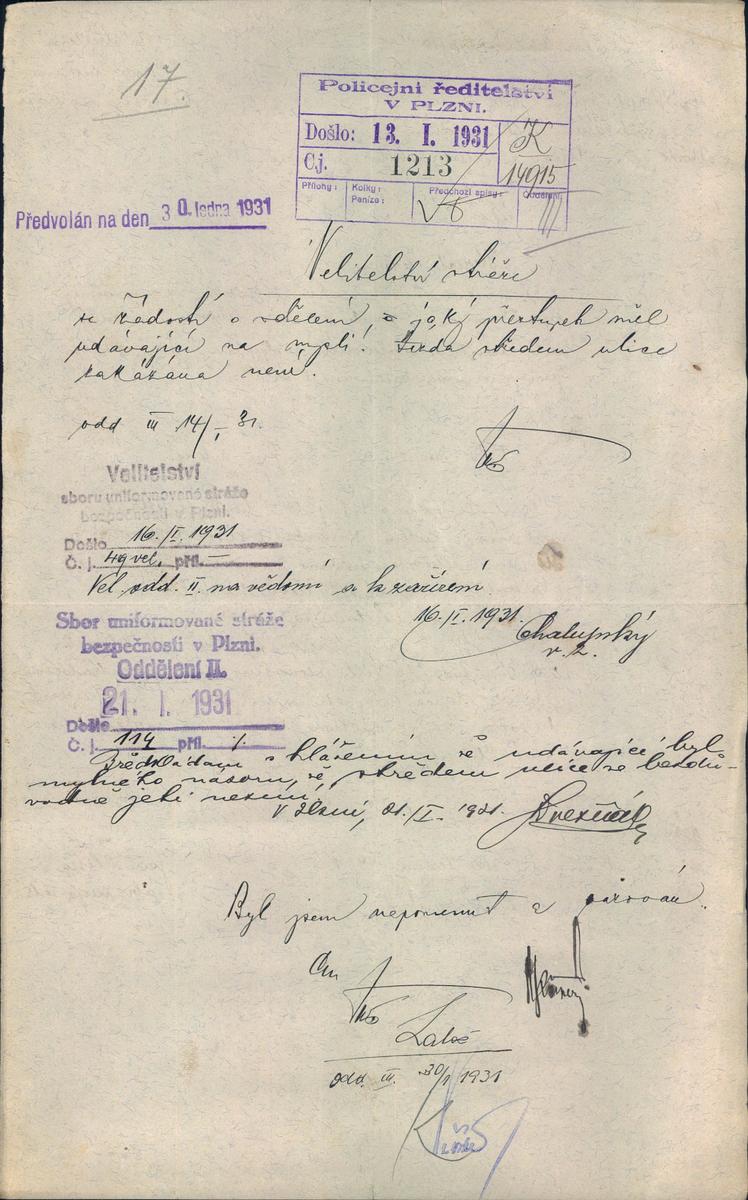 17.
Policejní ředitelství
V PLZNI.
Došlo: 13. I. 1931
K
Čj. 1213
14915
Přílohy: Kolky: Peníze: Předchozí spisy: Oddělení:
III
Předvolán na den 30. ledna 1931
Velitelství stráže
se žádostí o sdělení, jaký přestupek měl
udávající na mysli! Jízda středem ulice
zakázána není.
odd III 14/I 31.
Velitelství
sboru uniformované stráže
bezpečnosti v Plzni.
Došlo 16./I. 1931
Č. j. 49 vel. příl. —
Vel. odd. II. na vědomí a k zařízení.
16./I. 1931.
Chalupský
v. z.
Sbor uniformované stráže
bezpečnosti v Plzni.
Oddělení II.
21. I. 1931
Došlo
Č. j. 114 příl. /.
Předkládám s hlášením, že udávající byl
mylného názoru, že středem ulice se bezdů-
vodně jeti nesmí.
V Plzni, 21./I. 1931.
Byl jsem napomenut a varován.
odd. III. 30/I 1931